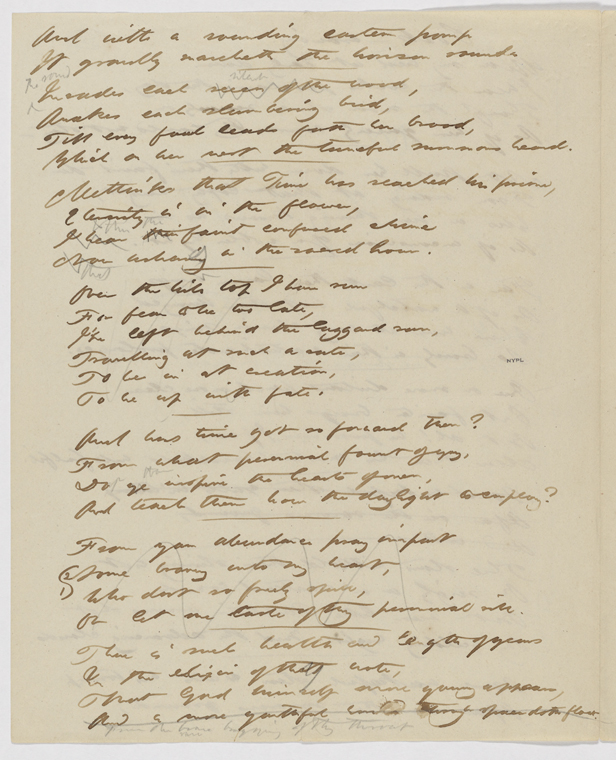 And with a sounding eastern pomp
It grandly marcheth the horizon round
Invades each recess of the wood,
Awakes each slumbering bird,
Till every fowl leads forth her brood,
Which on her nest the tuneful summons heard.
Methinks that Time has reached his prime,
Eternity is in the flower,
I hear this faint confused chime
Now ushering in the sacred hour.
that
Over the hills top I have run
For fear to be too late,
I've left behind the laggard sun,
Travelling at such a rate,
To be in at creation,
To be up with fate.
NYPL
And has time got so forward then?
From what perennial fount of joy,
Do ye inspire the hearts of men,
And teach them how the daylight to employ?
From your abundance pray impart
2) Some bravery unto my heart,
1) Who dost so freely spill,
Or let me taste of thy perennial rill.
There is such health and length of years
In the elixir of thy note,
That God himself more young appears,
And a more youthful world through space doth flow.
From the brave of thy throat